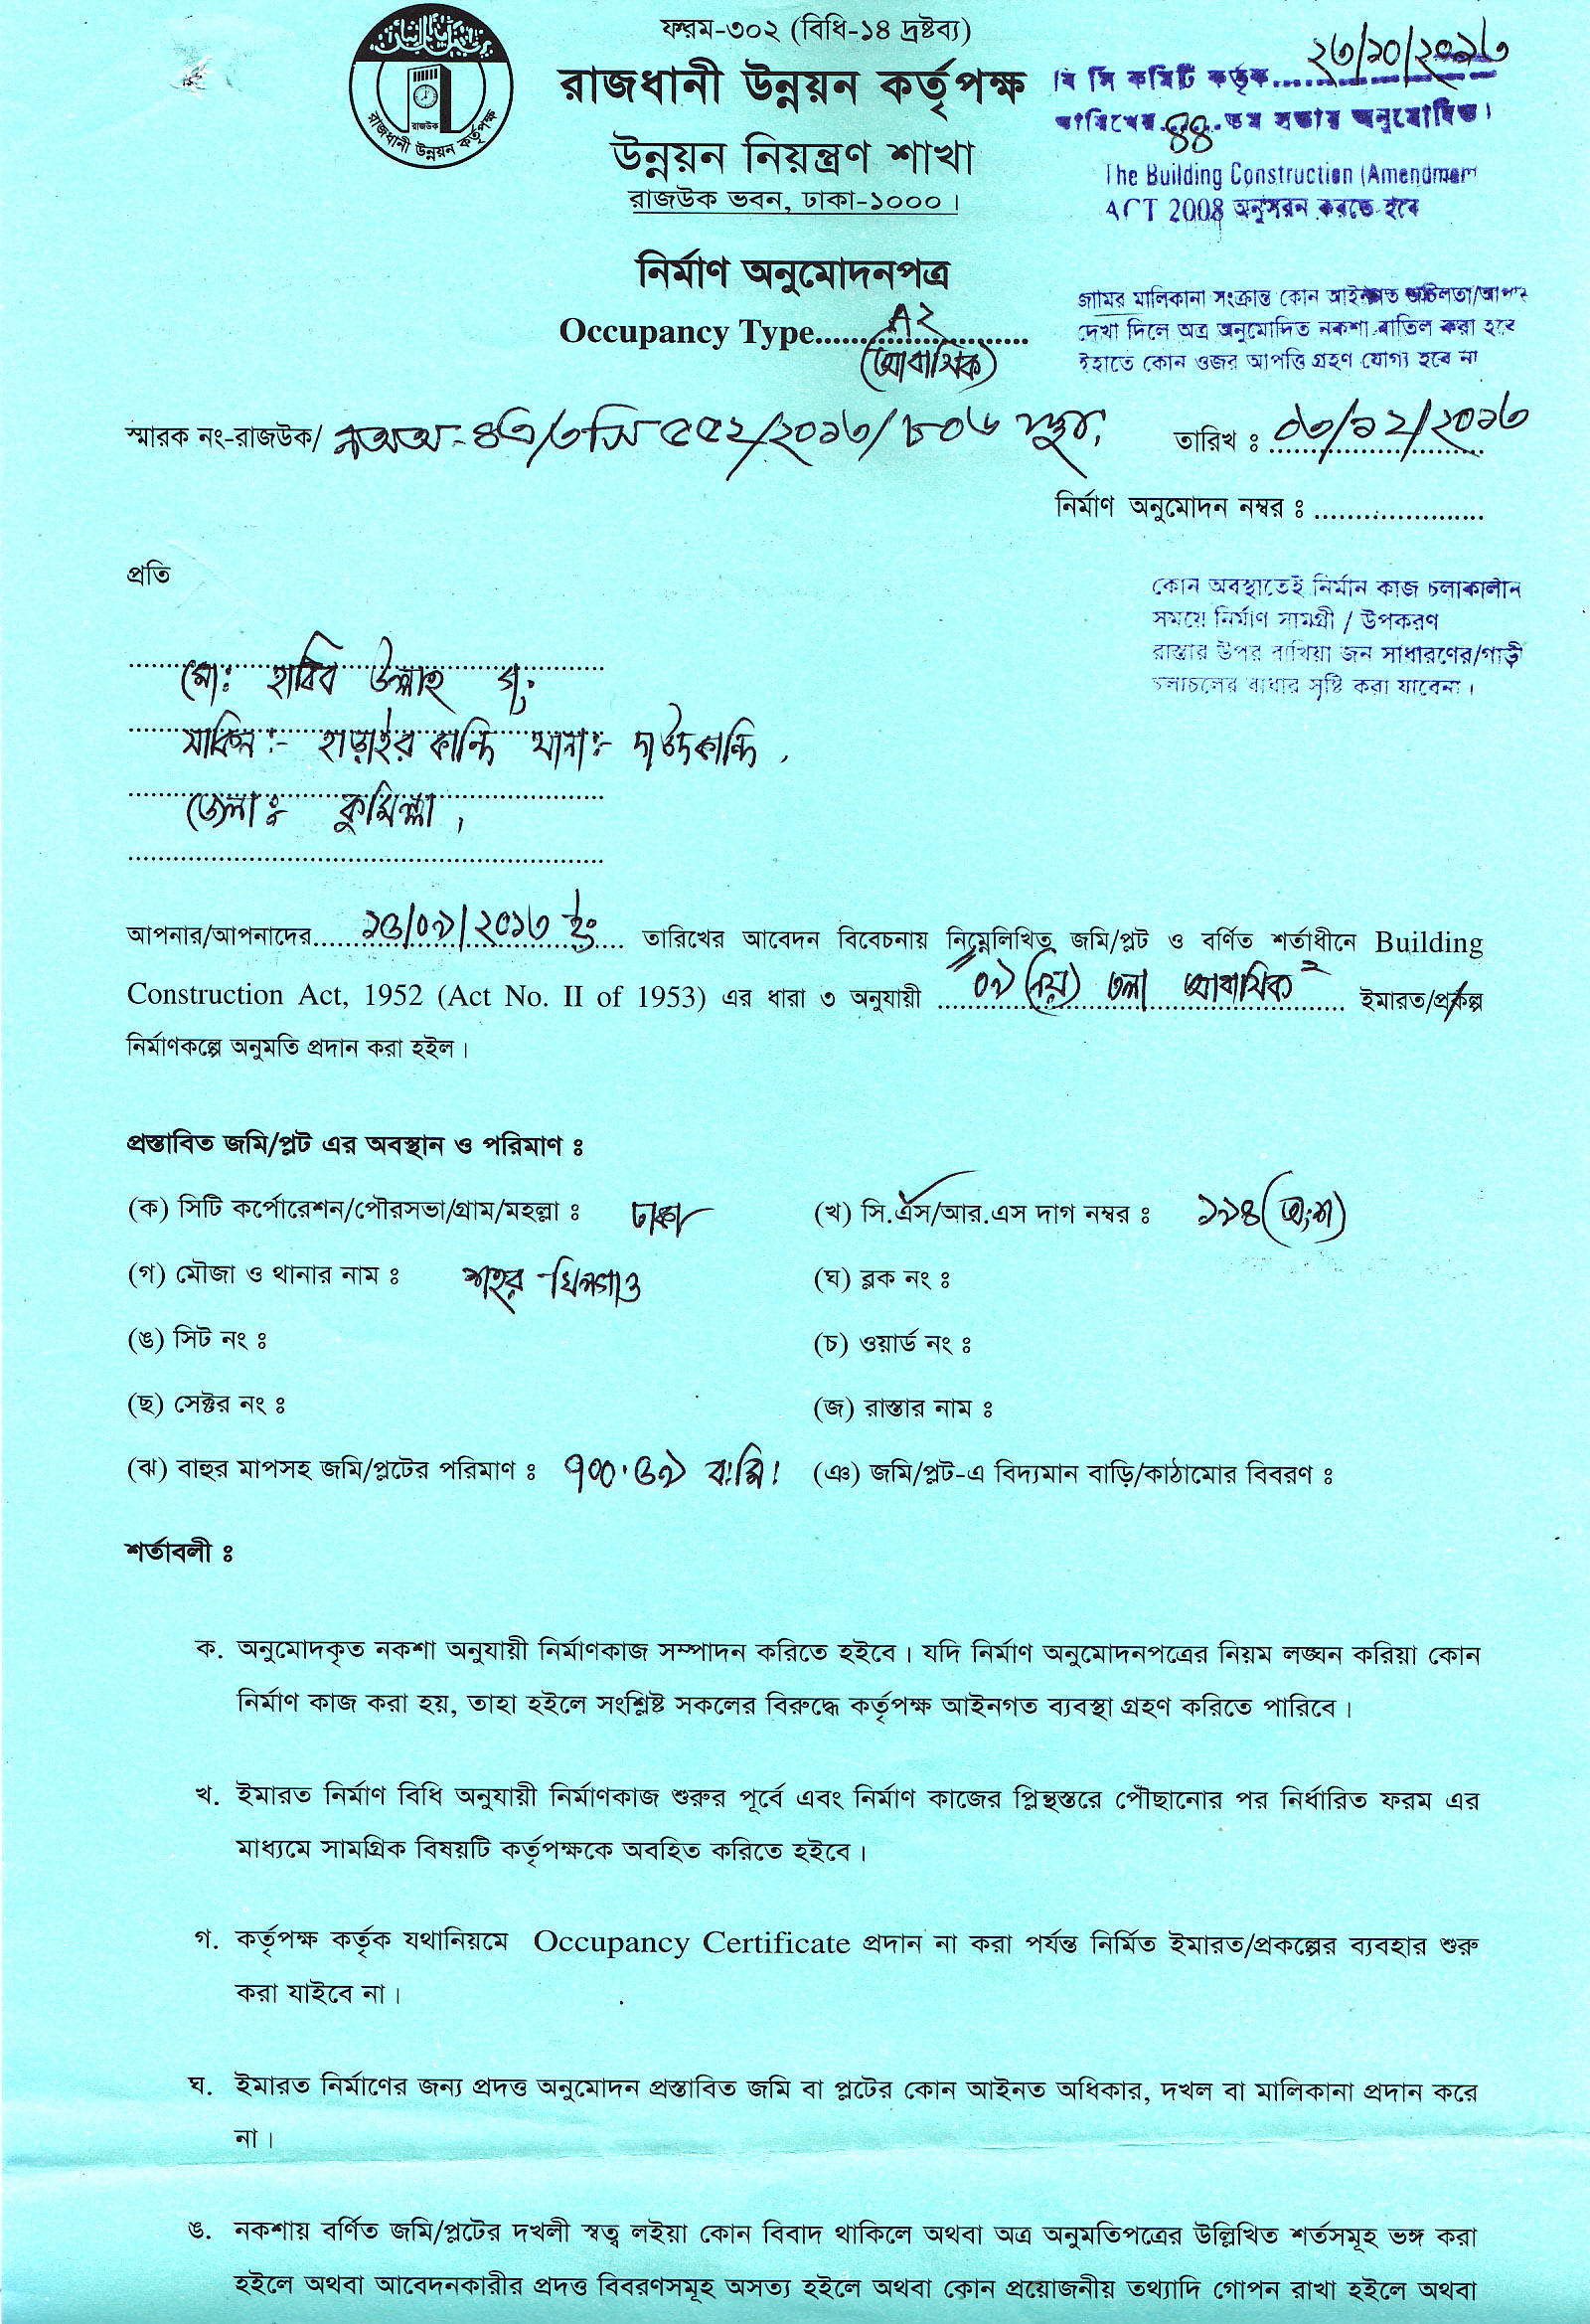 ফরম-৩০২ (বিধি-১৪ দ্রষ্টব্য)
রাজধানী উন্নয়ন কর্তৃপক্ষ
উন্নয়ন নিয়ন্ত্রণ শাখা
রাজউক ভবন, ঢাকা-১০০০।
রাজউক
রাজধানী উন্নয়ন কর্তৃপক্ষ
বি সি কমিটি কর্তৃক........ ২৩/১০/২০১৩
তারিখের....৪৪..তম সভায় অনুমোদিত।
The Building Construction (Amendmen
ACT 2008 অনুসরন করতে হবে
নির্মাণ অনুমোদনপত্র
Occupancy Type.....A2.....
(আবাসিক)
জামির মালিকানা সংক্রান্ত কোন আইনগত জটিলতা/আপত্তি
দেখা দিলে অত্র অনুমোদিত নকশা বাতিল করা হবে
ইহাতে কোন ওজর আপত্তি গ্রহণ যোগ্য হবে না
স্মারক নং-রাজউক/ নঅঅ-৪এ/৩সি ৫৫২/২০১৩/৮০৬
তারিখ ঃ ০৩/১২/২০১৩
নির্মাণ অনুমোদন নম্বর ঃ ....................
প্রতি
কোন অবস্থাতেই নির্মান কাজ চলাকালীন
সময়ে নির্মাণ সামগ্রী / উপকরণ
রাস্তার উপর রাখিয়া জন সাধারণের/গাড়ী
চলাচলের বাধার সৃষ্টি করা যাবেনা।
মো: হাবিব উল্লাহ গং
সাকিন:- হাড়াইর কান্দি থানা:- দাউদকান্দি,
জেলাঃ- কুমিল্লা,
আপনার/আপনাদের....১৫/০৯/২০১৩ ইং.... তারিখের আবেদন বিবেচনায় নিম্নেলিখিত জমি/প্লট ও বর্ণিত শর্তাধীনে Building
Construction Act, 1952 (Act No. II of 1953) এর ধারা ৩ অনুযায়ী ....০৯ (নয়) তলা আবাসিক.... ইমারত/প্রকল্প
নির্মাণকল্পে অনুমতি প্রদান করা হইল।
প্রস্তাবিত জমি/প্লট এর অবস্থান ও পরিমাণ ঃ
(ক) সিটি কর্পোরেশন/পৌরসভা/গ্রাম/মহল্লা ঃ ঢাকা
(খ) সি.এস/আর.এস দাগ নম্বর ঃ ১৯৪ (অংশ)
(গ) মৌজা ও থানার নাম ঃ শহর খিলগাও
(ঘ) ব্লক নং ঃ
(ঙ) সিট নং ঃ
(চ) ওয়ার্ড নং ঃ
(ছ) সেক্টর নং ঃ
(জ) রাস্তার নাম ঃ
(ঝ) বাহুর মাপসহ জমি/প্লটের পরিমাণ ঃ ৭০০.৫৯ ব:মি।
(ঞ) জমি/প্লট-এ বিদ্যমান বাড়ি/কাঠামোর বিবরণ ঃ
শর্তাবলী ঃ
ক. অনুমোদকৃত নকশা অনুযায়ী নির্মাণকাজ সম্পাদন করিতে হইবে। যদি নির্মাণ অনুমোদনপত্রের নিয়ম লঙ্ঘন করিয়া কোন
নির্মাণ কাজ করা হয়, তাহা হইলে সংশ্লিষ্ট সকলের বিরুদ্ধে কর্তৃপক্ষ আইনগত ব্যবস্থা গ্রহণ করিতে পারিবে।
খ. ইমারত নির্মাণ বিধি অনুযায়ী নির্মাণকাজ শুরুর পূর্বে এবং নির্মাণ কাজের প্লিন্থস্তরে পৌঁছানোর পর নির্ধারিত ফরম এর
মাধ্যমে সামগ্রিক বিষয়টি কর্তৃপক্ষকে অবহিত করিতে হইবে।
গ. কর্তৃপক্ষ কর্তৃক যথানিয়মে Occupancy Certificate প্রদান না করা পর্যন্ত নির্মিত ইমারত/প্রকল্পের ব্যবহার শুরু
করা যাইবে না।
ঘ. ইমারত নির্মাণের জন্য প্রদত্ত অনুমোদন প্রস্তাবিত জমি বা প্লটের কোন আইনত অধিকার, দখল বা মালিকানা প্রদান করে
না।
ঙ. নকশায় বর্ণিত জমি/প্লটের দখলী স্বত্ব লইয়া কোন বিবাদ থাকিলে অথবা অত্র অনুমতিপত্রের উল্লিখিত শর্তসমূহ ভঙ্গ করা
হইলে অথবা আবেদনকারীর প্রদত্ত বিবরণসমূহ অসত্য হইলে অথবা কোন প্রয়োজনীয় তথ্যাদি গোপন রাখা হইলে অথবা